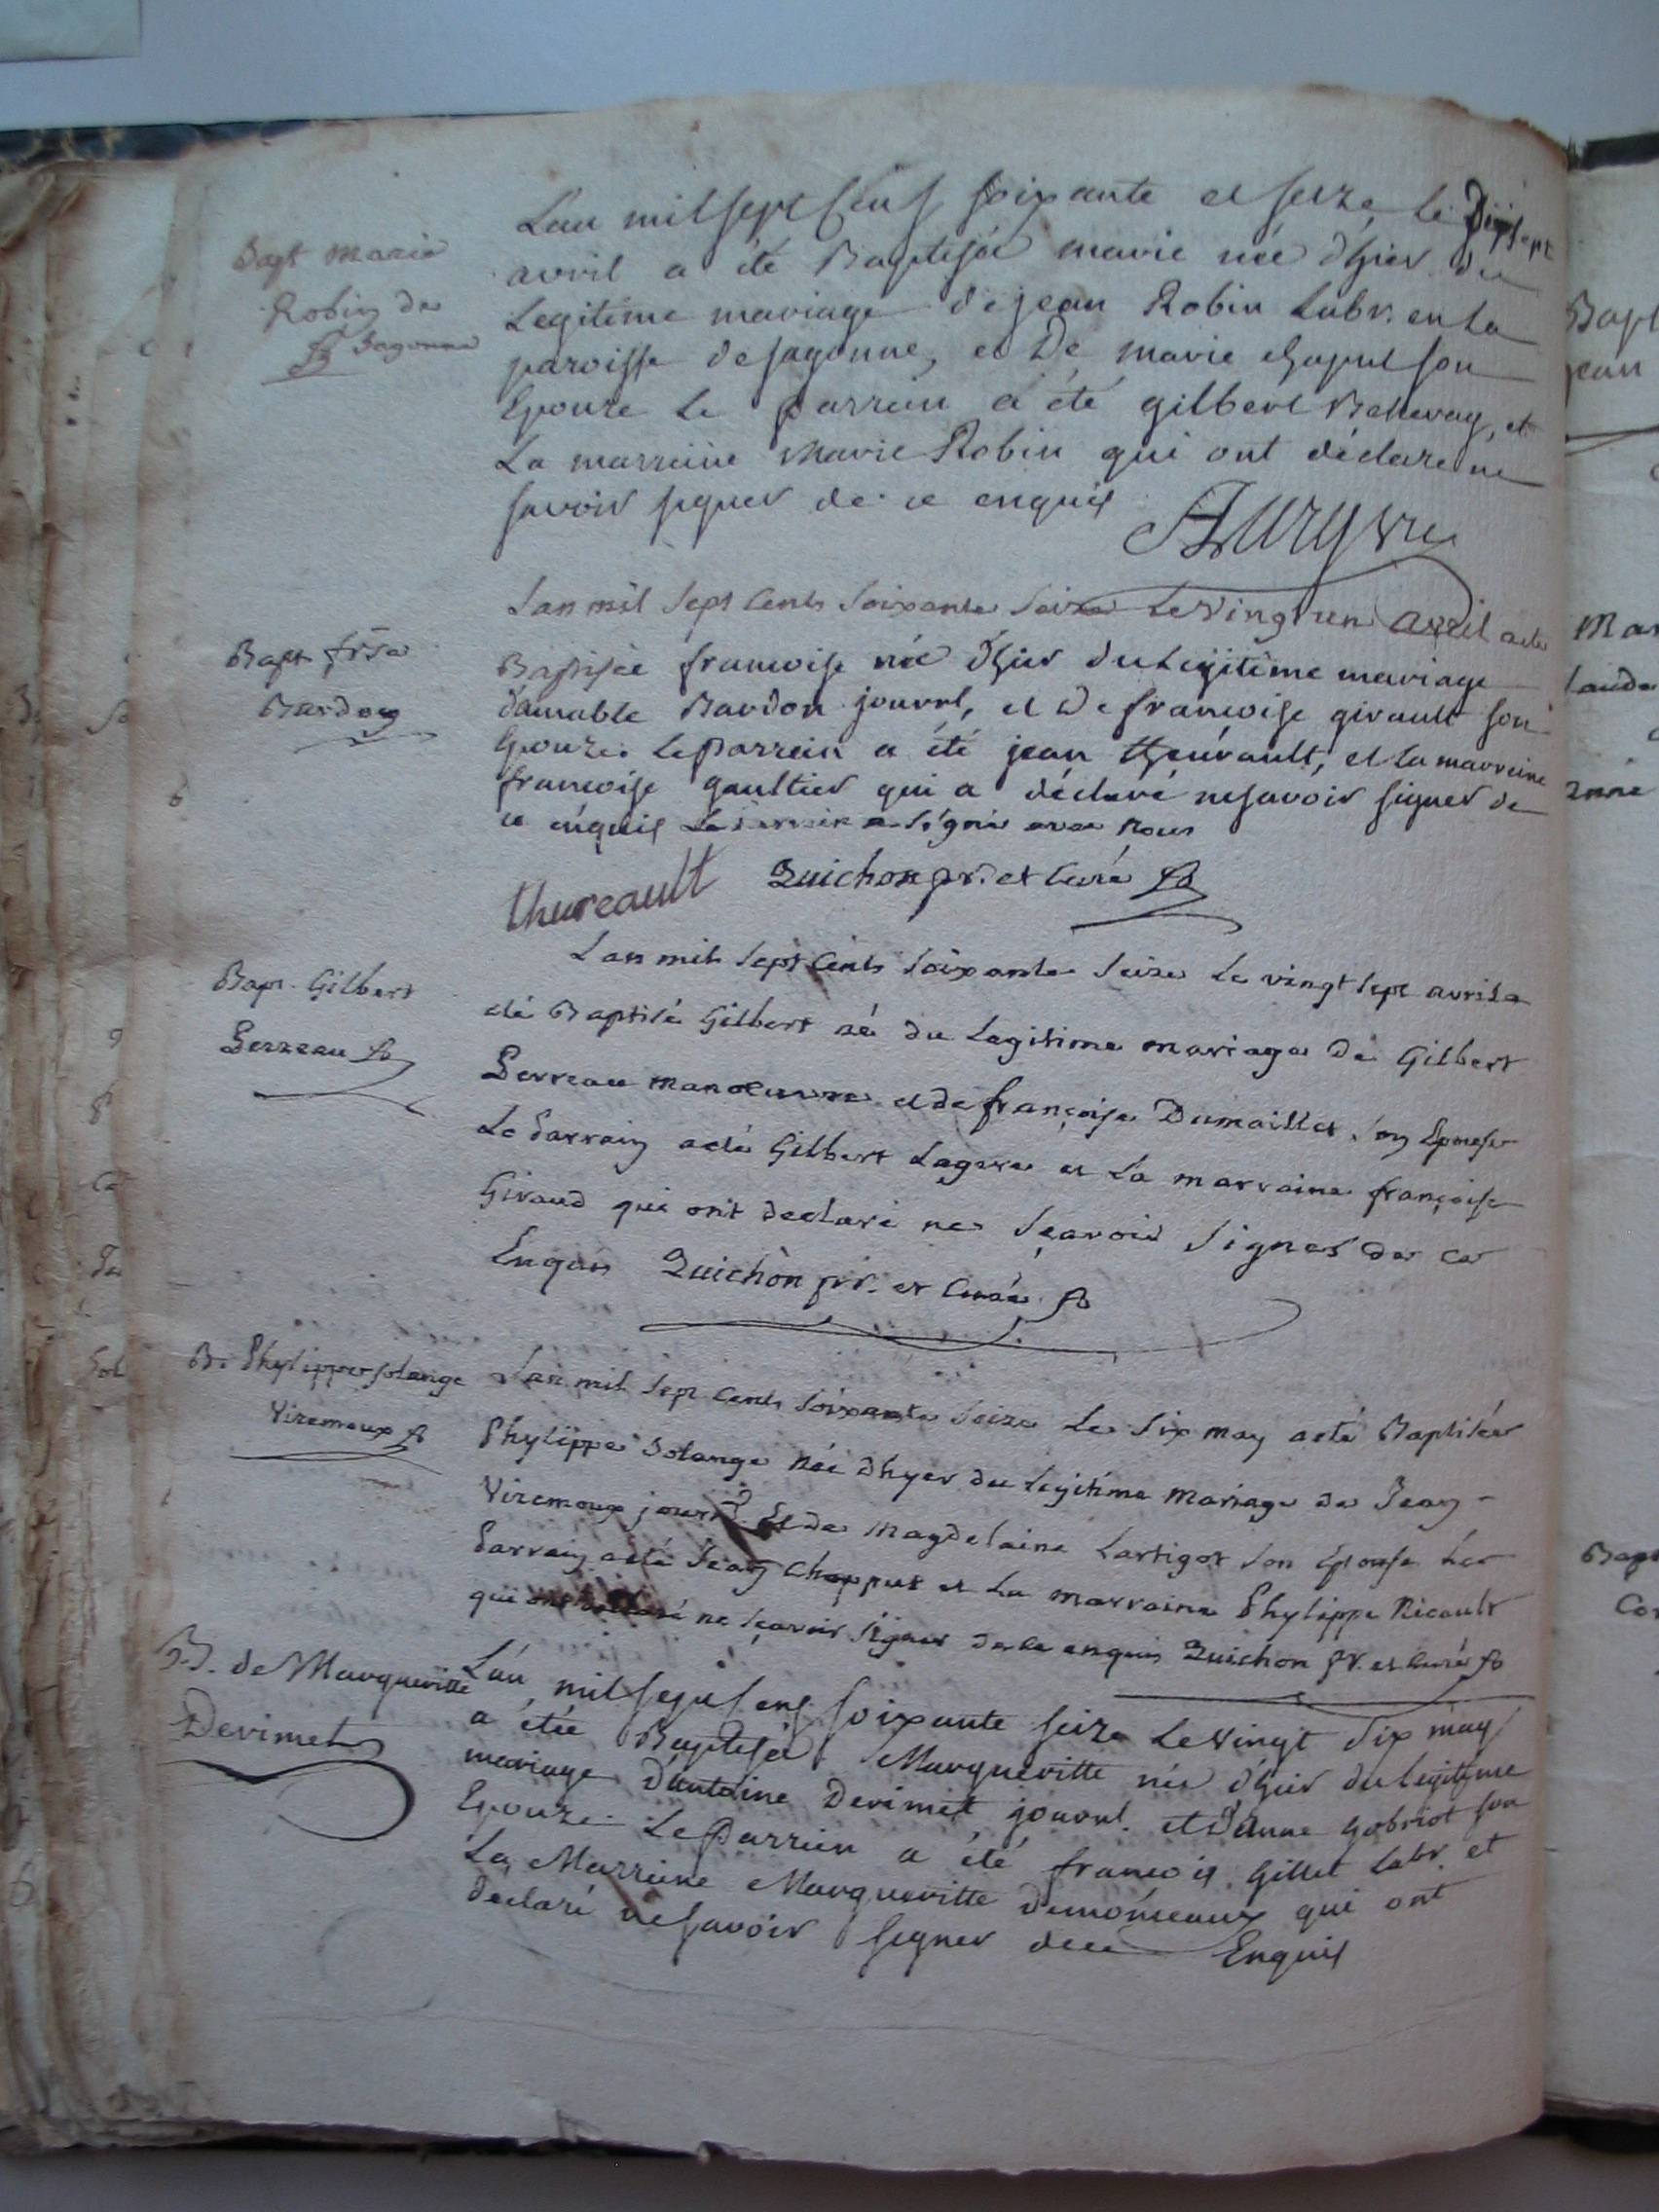 Bapt Marie
Robin de
Sagonne
Lan mil sept Cens soixante et seize, le Dixsept
avril a été Baptisée marie née d'hier du
Legitime mariage de jean Robin Labr. en la
paroisse de sagonne, et De marie chaput son
Epouze Le parrein a été gilbert et
La marreine Marie Robin qui ont déclaré ne
savoir signer de ce enquis
Aury vre
Bapt frse
Bardon
Lan mil sept Cents soixante seize Le vingt un avril a été
Baptisée francoise née d'hier du Legitime mariage
damable Bardon journl, et De francoise girault son
Epouze. Le parrein a été jean theurault, et la marreine
francoise gaultier qui a déclaré ne savoir signer de
ce enquis Le parrain a signé avec nous
thureault Quichon pr. et Curé
Bapt. Gilbert
Perreau
Lan mil sept Cents soixante seize Le vingt sept avril a
été Baptisé Gilbert né du Legitime mariage de Gilbert
Perreau manoeuvre et de françoise Dumaillet son Epouse
Le Parrain a été Gilbert Lagere et La marraine françoise
Giraud qui ont declaré ne sçavoir signer de ce
Enquis Quichon pr. et Curé
B. Phylippe solange
Viremoux
Lan mil sept Cents soixante seize Le six may a été Baptisée
Phylippe Solange née dhyer du Legitime mariage de Jean
Viremoux journl. Et de Magdelaine Lartigot son Epouse Le
Parrain a été Jean Chapput et La marraine Phylippe Ricault
qui ont declaré ne sçavoir signer de ce enquis Quichon pr. et Curé
B. de Marguerite
Devimet
Lan mil sept Cens soixante seize Le vingt six may
a étée Baptisée Marguerite née d'hier du legitime
mariage d'antoine Devimet journl. et D'anne gobriot son
Epouze. Le Parrein a été francois Gillet labr. et
La Marreine Marguerite Demoneaux qui ont
declaré ne savoir signer de ce Enquis